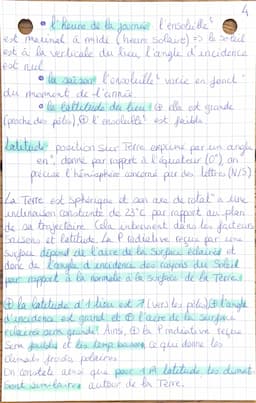 4
• l'heure de la journée : l'ensoleillt
est maximal à midi (heure solaire) => le soleil
est à la verticale du lieu, l'angle d'incidence
est nul
• la saison : l'ensoleillt varie en fonct°
du moment de l'année.
• la lattitude du lieu : ⊕ elle est grande
(proche des pôles), ⊕ l'ensoleillt est faible
Latitude : position sur Terre exprimée par un angle
en °, donné par rapport à l'équateur (0°), on
précise l'hémisphère concerné par des lettres (N/S)
La Terre est sphérique et son axe de rotat° a une
inclinaison constante de 23°C par rapport au plan
de sa trajectoire. Cela intervient dans les facteurs
saisons et latitude. La P radiative reçue par une
surface dépend de l'aire de la surface éclairée et
donc de l'angle d'incidence des rayons du Soleil
par rapport à la normale à la surface de la Terre.
⊕ la latitude d'1 lieu est ↗ (vers les pôles) ⊕ l'angle
d'incidence est grand et ⊕ l'aire de la surface
éclairée sera grande. Ainsi, ⊕ la P radiative reçue
sera faible et les temp basses ce qui donne les
climats froids polaires.
On constate ainsi que pour 1 latitude les climat
sont similaires autour de la Terre.